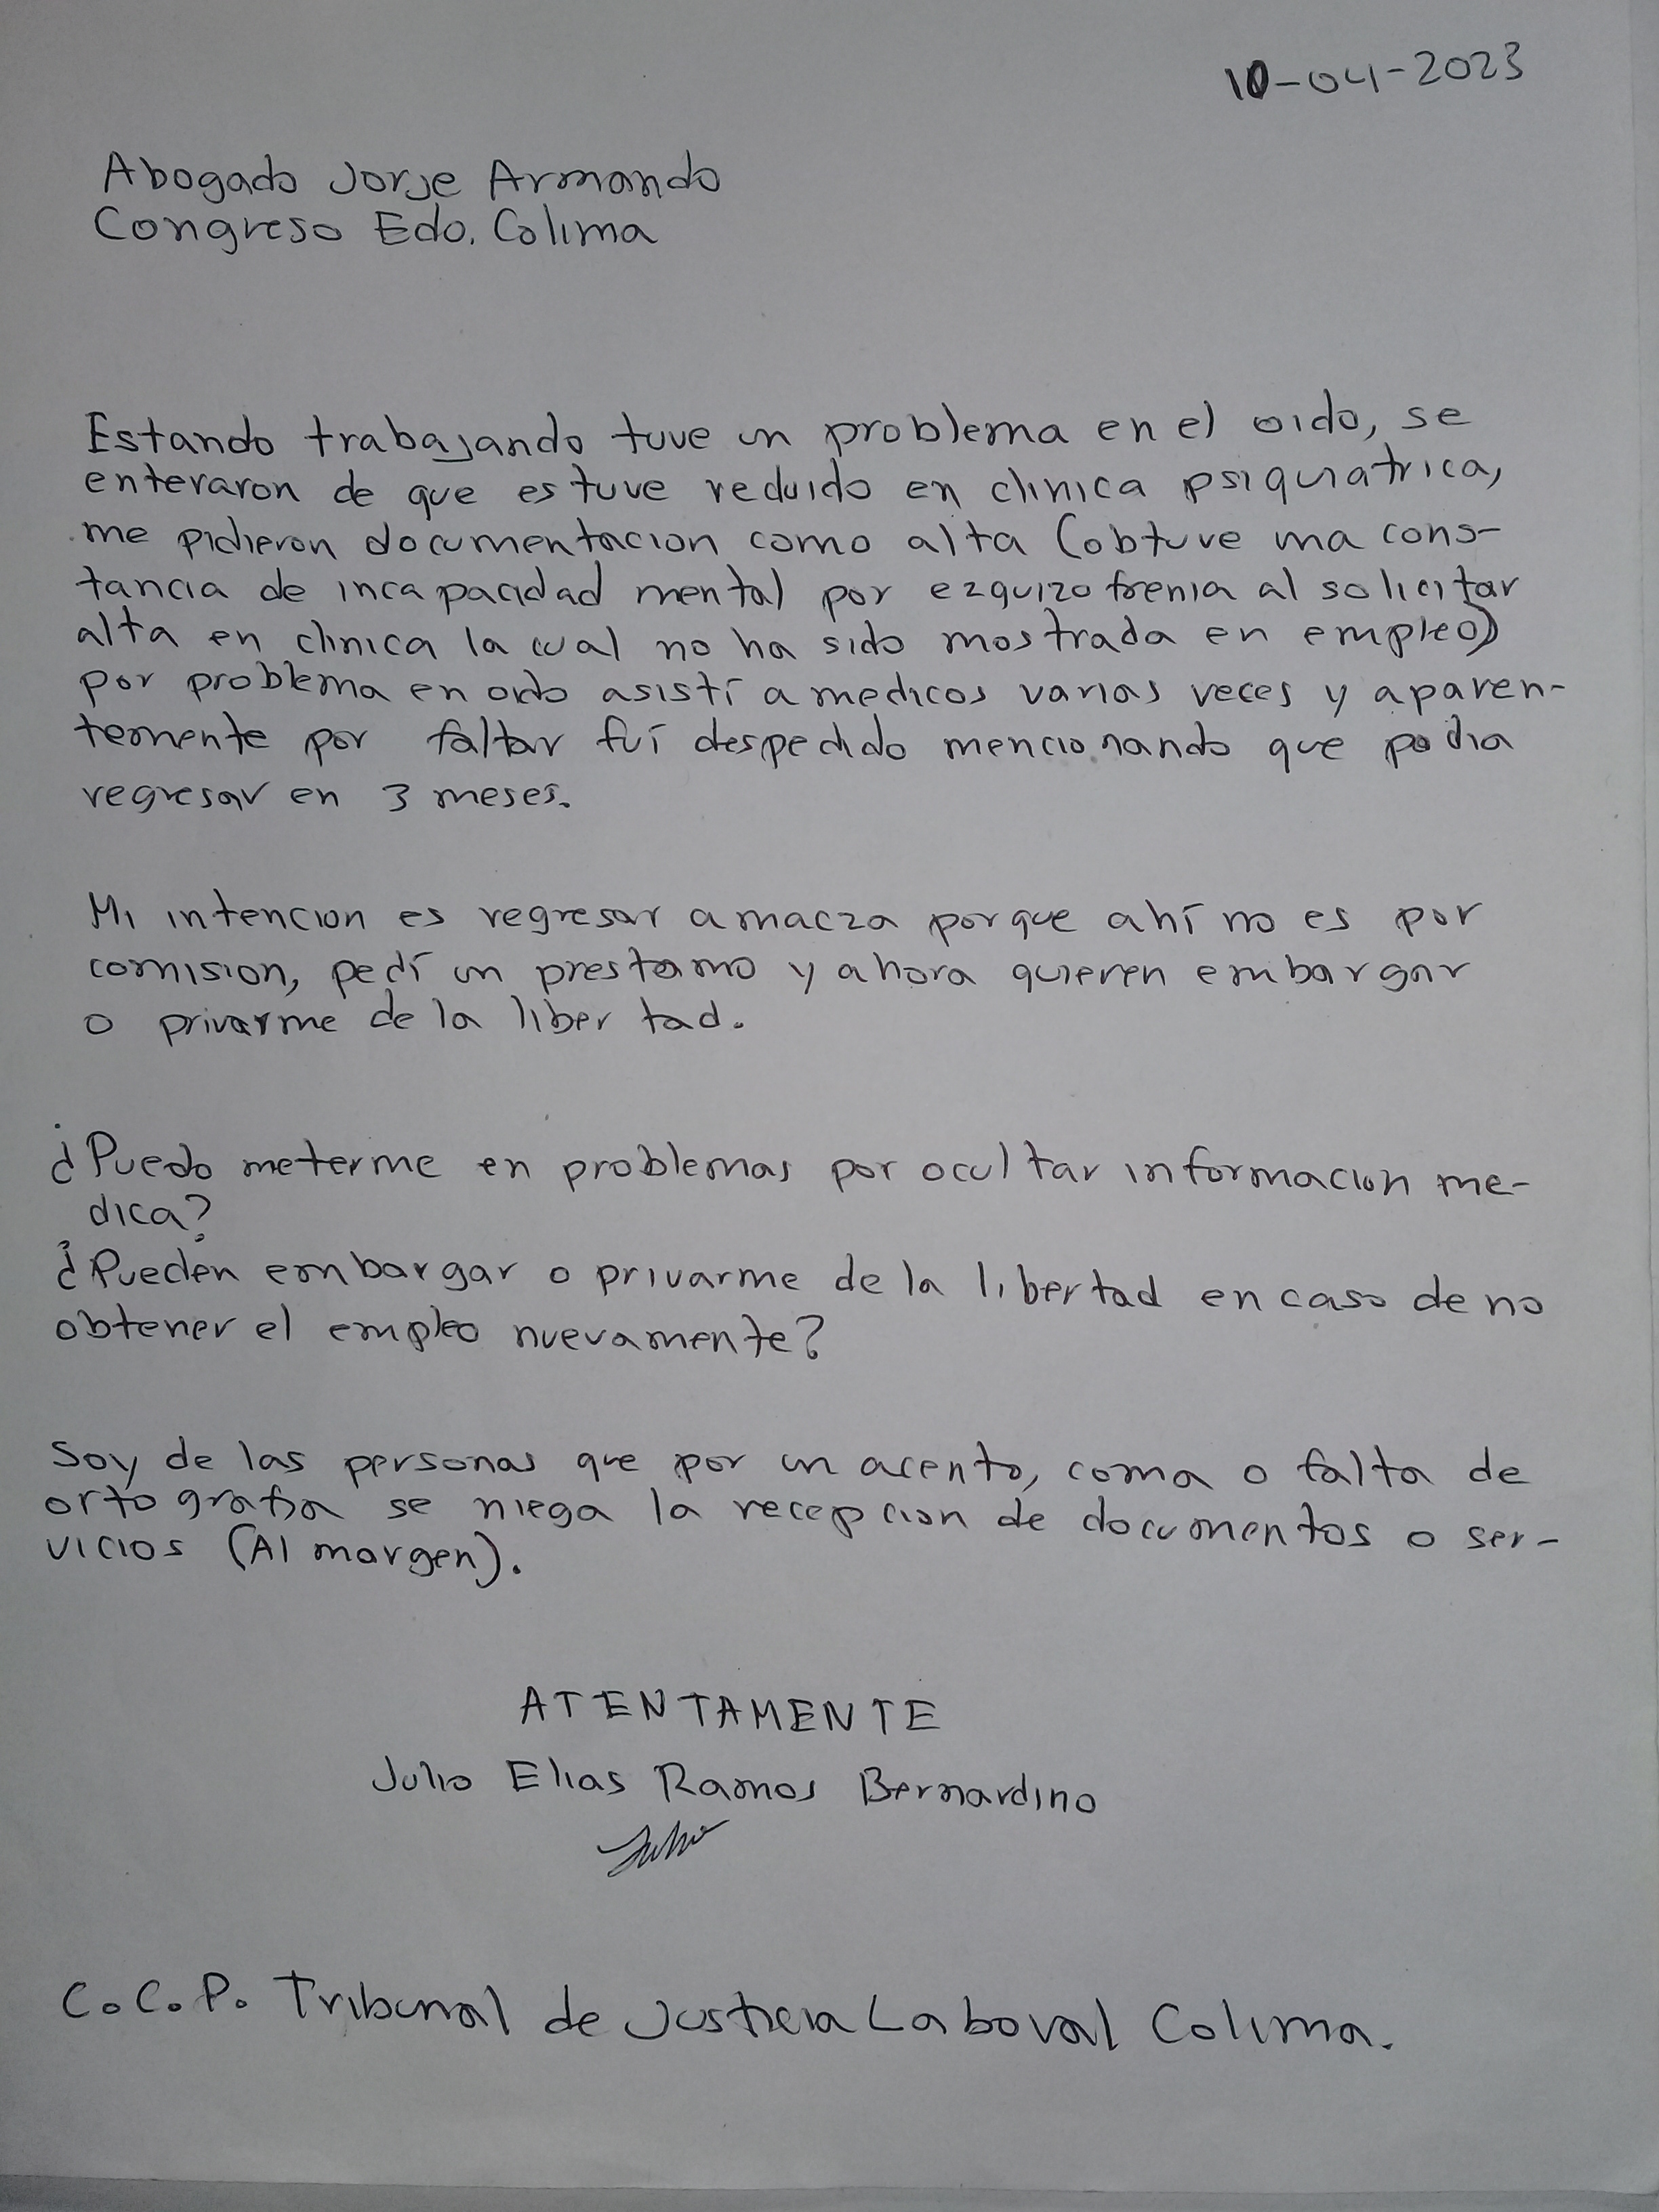 10-04-2023
Abogado Jorje Armando
Congreso Edo. Colima
Estando trabajando tuve un problema en el oido, se
enteraron de que estuve recluido en clinica psiquiatrica,
me pidieron documentacion como alta (obtuve una cons-
tancia de incapacidad mental por ezquizofrenia al solicitar
alta en clinica la cual no ha sido mostrada en empleo)
por problema en oido asistí a medicos varias veces y aparen-
temente por faltar fuí despedido mencionando que podia
regresar en 3 meses.
Mi intencion es regresar a macza porque ahí no es por
comision, pedí un prestamo y ahora quieren embargar
o privarme de la libertad.
¿Puedo meterme en problemas por ocultar informacion me-
dica?
¿Pueden embargar o privarme de la libertad en caso de no
obtener el empleo nuevamente?
Soy de las personas que por un acento, coma o falta de
ortografia se niega la recepcion de documentos o ser-
vicios (Al margen).
ATENTAMENTE
Julio Elias Ramos Bernardino
Julio
C.C.P. Tribunal de Justicia Laboral Colima.